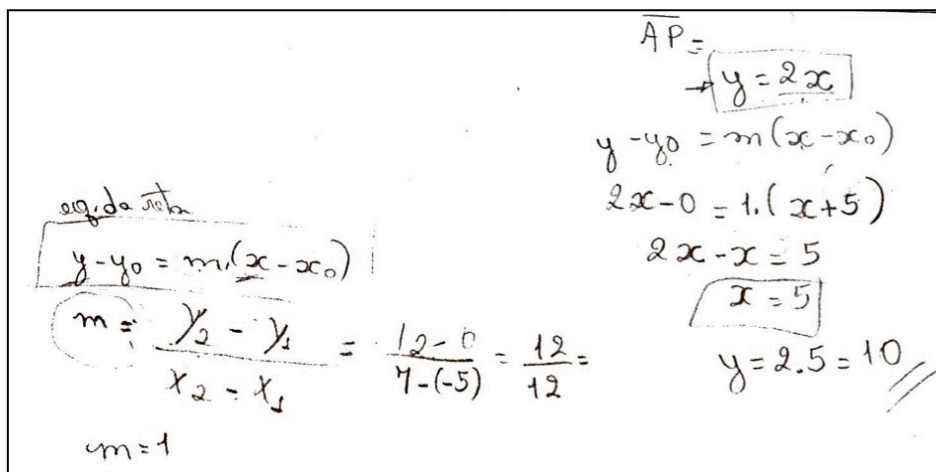 eq. da reta
y-y₀ = m.(x-x₀)
m = y₂ - y₁ / x₂ - x₁ = 12-0 / 7-(-5) = 12 / 12 =
m=1
AP =
→ y = 2x
y-y₀ = m(x-x₀)
2x-0 = 1.(x+5)
2x-x = 5
x = 5
y = 2.5 = 10